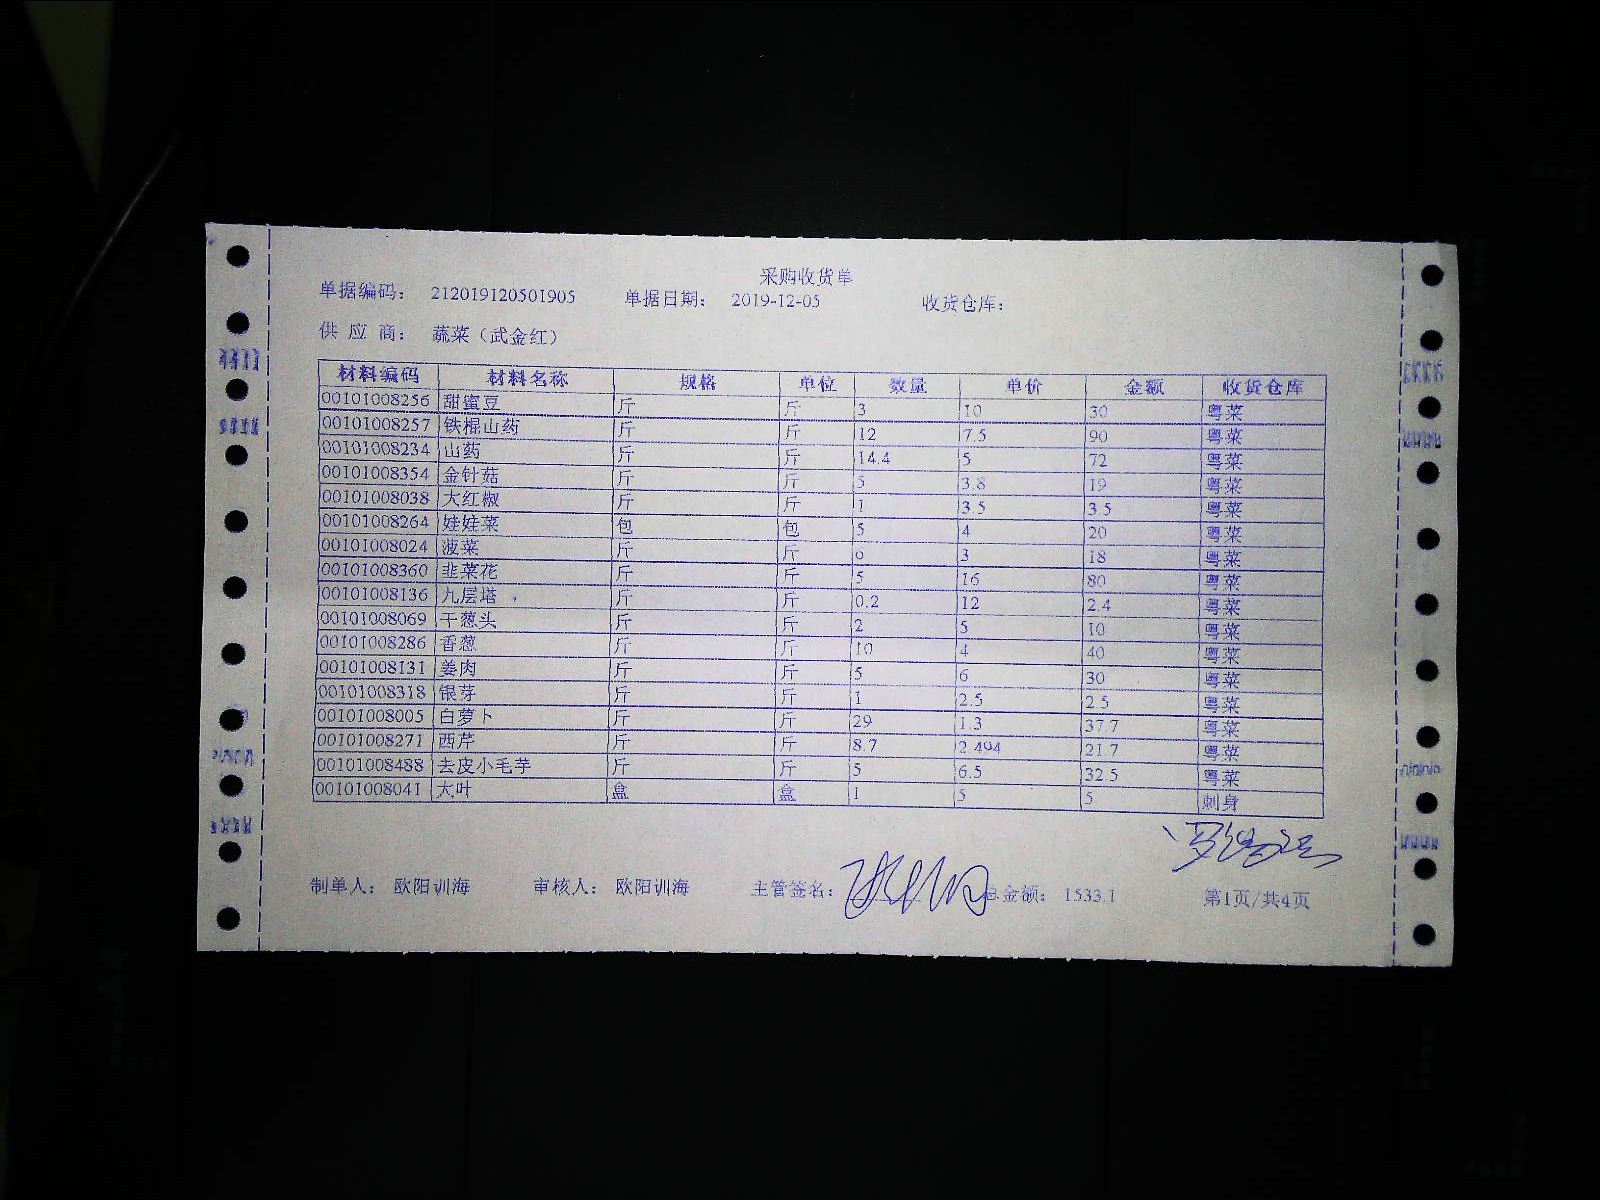 采购收货单
单据编码: 212019120501905 单据日期: 2019-12-05 收货仓库:
供 应 商: 蔬菜（武金红）
材料编码 材料名称 规格 单位 数量 单价 金额 收货仓库
00101008256 甜蜜豆 斤 斤 3 10 30 粤菜
00101008257 铁棍山药 斤 斤 12 7.5 90 粤菜
00101008234 山药 斤 斤 14.4 5 72 粤菜
00101008354 金针菇 斤 斤 5 3.8 19 粤菜
00101008038 大红椒 斤 斤 1 3.5 3.5 粤菜
00101008264 娃娃菜 包 包 5 4 20 粤菜
00101008024 菠菜 斤 斤 6 3 18 粤菜
00101008360 韭菜花 斤 斤 5 16 80 粤菜
00101008136 九层塔 斤 斤 0.2 12 2.4 粤菜
00101008069 干葱头 斤 斤 2 5 10 粤菜
00101008286 香葱 斤 斤 10 4 40 粤菜
00101008131 姜肉 斤 斤 5 6 30 粤菜
00101008318 银芽 斤 斤 1 2.5 2.5 粤菜
00101008005 白萝卜 斤 斤 29 1.3 37.7 粤菜
00101008271 西芹 斤 斤 8.7 2.494 21.7 粤菜
00101008488 去皮小毛芋 斤 斤 5 6.5 32.5 粤菜
00101008041 大叶 盒 盒 1 5 5 刺身
制单人: 欧阳训海 审核人: 欧阳训海 主管签名: 总金额: 1533.1 第1页/共4页